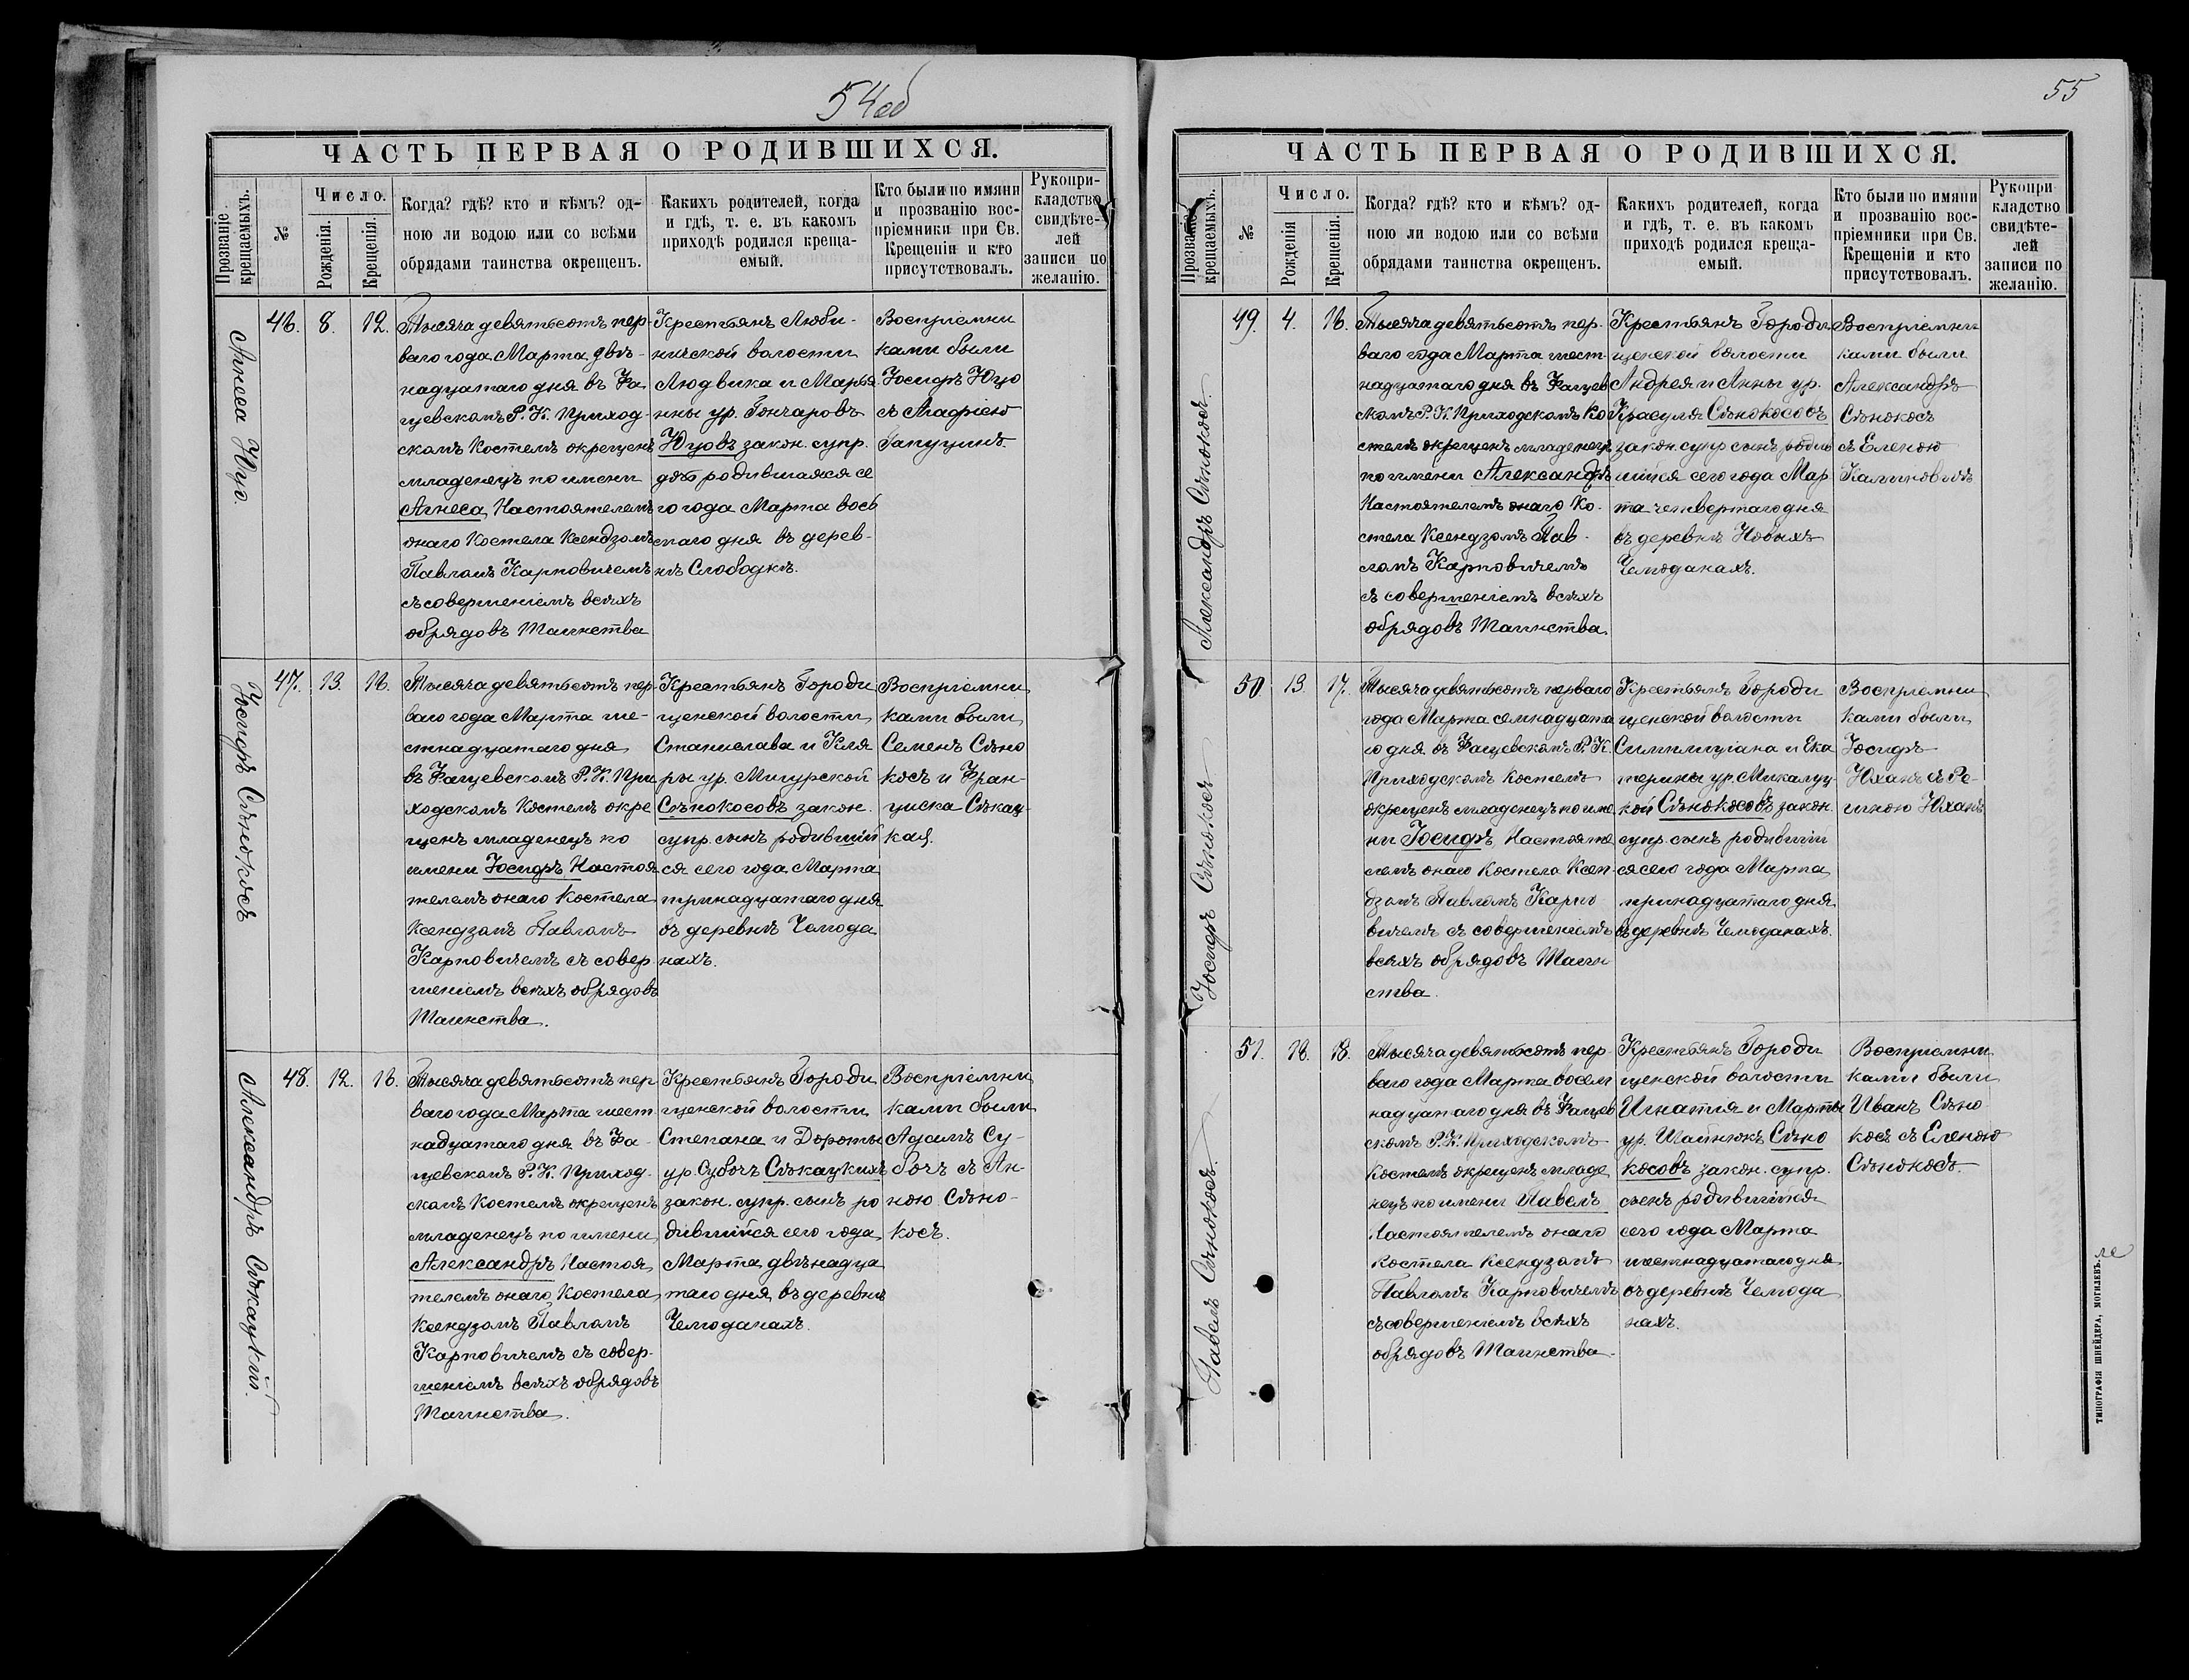 54об
ЧАСТЬ ПЕРВАЯ О РОДИВШИХСЯ.
Прозваніе крещаемыхъ.
№
Число.
Рожденія.
Крещенія.
Когда? гдѣ? кто и кѣмъ? од-
ною ли водою или со всѣми
обрядами таинства окрещенъ.
Какихъ родителей, когда
и гдѣ, т. е. въ какомъ
приходѣ родился креща-
емый.
Кто были по имяни
и прозванію вос-
пріемники при Св.
Крещеніи и кто
присутствовалъ.
Рукопри-
кладство
свидѣте-
лей
записи по
желанію.
Агнеса Юцо.
46. 8. 12.
Тысяча девятьсотъ пер-
ваго года Марта двѣ-
надцатаго дня въ Фа
щевскомъ Р. К. Приход-
скомъ Костелѣ окрещенъ
младенецъ по имени
Агнеса, Настоятелемъ
онаго Костела Ксендзомъ
Павломъ Карповичемъ
съ совершеніемъ всѣхъ
обрядовъ Таинства
Крестьянъ Люби-
ничской волости
Людвика и Марья
нны ур. Гончаровъ
Юцовъ закон. супр.
дочь родившаяся се
го года Марта вось
маго дня въ дерев-
нѣ Слободкѣ.
Воспріемни
ками были
Іосифъ Юцо
съ Агафіею
Гапуцинъ.
Іосифъ Сѣнокосъ
47. 13. 16.
Тысяча девятьсотъ пер-
ваго года Марта ше-
стнадцатаго дня
въ Фащевскомъ Р. К. При
ходскомъ Костелѣ окре
щенъ младенецъ по
имени Іосифъ, Настоя
телемъ онаго Костела
Ксендзомъ Павломъ
Карповичемъ съ совер-
шеніемъ всѣхъ обрядовъ
Таинства.
Крестьянъ Городи
щенской волости
Станислава и Кля
ры ур. Мигурской
Сѣнокосовъ закон.
супр. сынъ родившій
ся сего года Марта
тринадцатаго дня
въ деревнѣ Чемода
нахъ.
Воспріемни
ками были
Семенъ Сѣно
косъ и Фран-
циска Сѣкац-
кая.
Александръ Сѣкацкій.
48. 12. 16.
Тысяча девятьсотъ пер
ваго года Марта шест
надцатаго дня въ Фа-
щевскомъ Р. К. Приход-
скомъ Костелѣ окрещенъ
младенецъ по имени
Александръ Настоя
телемъ онаго Костела
Ксендзомъ Павломъ
Карповичемъ съ совер-
шеніемъ всѣхъ обрядовъ
Таинства.
Крестьянъ Городи
щенской волости
Степана и Дороты
ур. Субочъ Сѣкацкихъ
закон. супр. сынъ ро
дившійся сего года
Марта двѣнадца
таго дня въ деревнѣ
Чемоданахъ.
Воспріемни
ками были
Адамъ Су-
бочъ съ Ан-
ною Сѣно-
косъ.
55
ЧАСТЬ ПЕРВАЯ О РОДИВШИХСЯ.
Прозваніе крещаемыхъ.
№
Число.
Рожденія
Крещенія.
Когда? гдѣ? кто и кѣмъ? од-
ною ли водою или со всѣми
обрядами таинства окрещенъ.
Какихъ родителей, когда
и гдѣ, т. е. въ какомъ
приходѣ родился креща-
емый.
Кто были по имяни
и прозванію вос-
пріемники при Св.
Крещеніи и кто
присутствовалъ.
Рукопри
кладство
свидѣте-
лей
записи по
желанію.
Александръ Сѣнокосъ
49. 4. 16.
Тысяча девятьсотъ пер-
ваго года Марта шест-
надцатаго дня въ Фащев
скомъ Р. К. Приходскомъ Ко
стелѣ окрещенъ младенецъ
по имени Александръ
Настоятелемъ онаго Ко-
стела Ксендзомъ Пав-
ломъ Карповичемъ
съ совершеніемъ всѣхъ
обрядовъ Таинства.
Крестьянъ Городи
щенской волости
Андрея и Анны ур.
Красуля Сѣнокосовъ
закон. супр. сынъ родив
шійся сего года Мар
та четвертаго дня
въ деревнѣ Новыхъ
Чемоданахъ.
Воспріемни
ками были
Александръ
Сѣнокосъ
съ Еленою
Калиновичъ
Іосифъ Сѣнокосъ
50 13. 17.
Тысяча девятьсотъ перваго
года Марта семнадцата
го дня въ Фащевскомъ Р. К.
Приходскомъ Костелѣ
окрещенъ младенецъ по име
ни Іосифъ, Настояте
лемъ онаго Костела Ксен-
дзомъ Павломъ Карпо
вичемъ съ совершеніемъ
всѣхъ обрядовъ Таин
ства.
Крестьянъ Городи
щенской волости
Симплиціана и Ека
терины ур. Микалуц-
кой Сѣнокосовъ закон.
супр. сынъ родившій
ся сего года Марта
тринадцатаго дня
въ деревнѣ Чемоданахъ.
Воспріемни
ками были
Іосифъ
Юханъ съ Ре-
гиною Юханъ
Павелъ Сѣнокосъ
51. 16. 18.
Тысяча девятьсотъ пер-
ваго года Марта восем
надцатаго дня въ Фащев
скомъ Р. К. Приходскомъ
Костелѣ окрещенъ младе
нецъ по имени Павелъ
Настоятелемъ онаго
Костела Ксендзомъ
Павломъ Карповичемъ
съ совершеніемъ всѣхъ
обрядовъ Таинства.
Крестьянъ Городи
щенской волости
Игнатія и Марты
ур. Шайнюкъ Сѣно
косовъ закон. супр.
сынъ родившійся
сего года Марта
шестнадцатаго дня
въ деревнѣ Чемода
нахъ.
Воспріемни
ками были
Иванъ Сѣно
косъ съ Еленою
Сѣнокосъ.
ТИПОГРАФІЯ ШНЕЙДЕРА, МОГИЛЕВЪ.